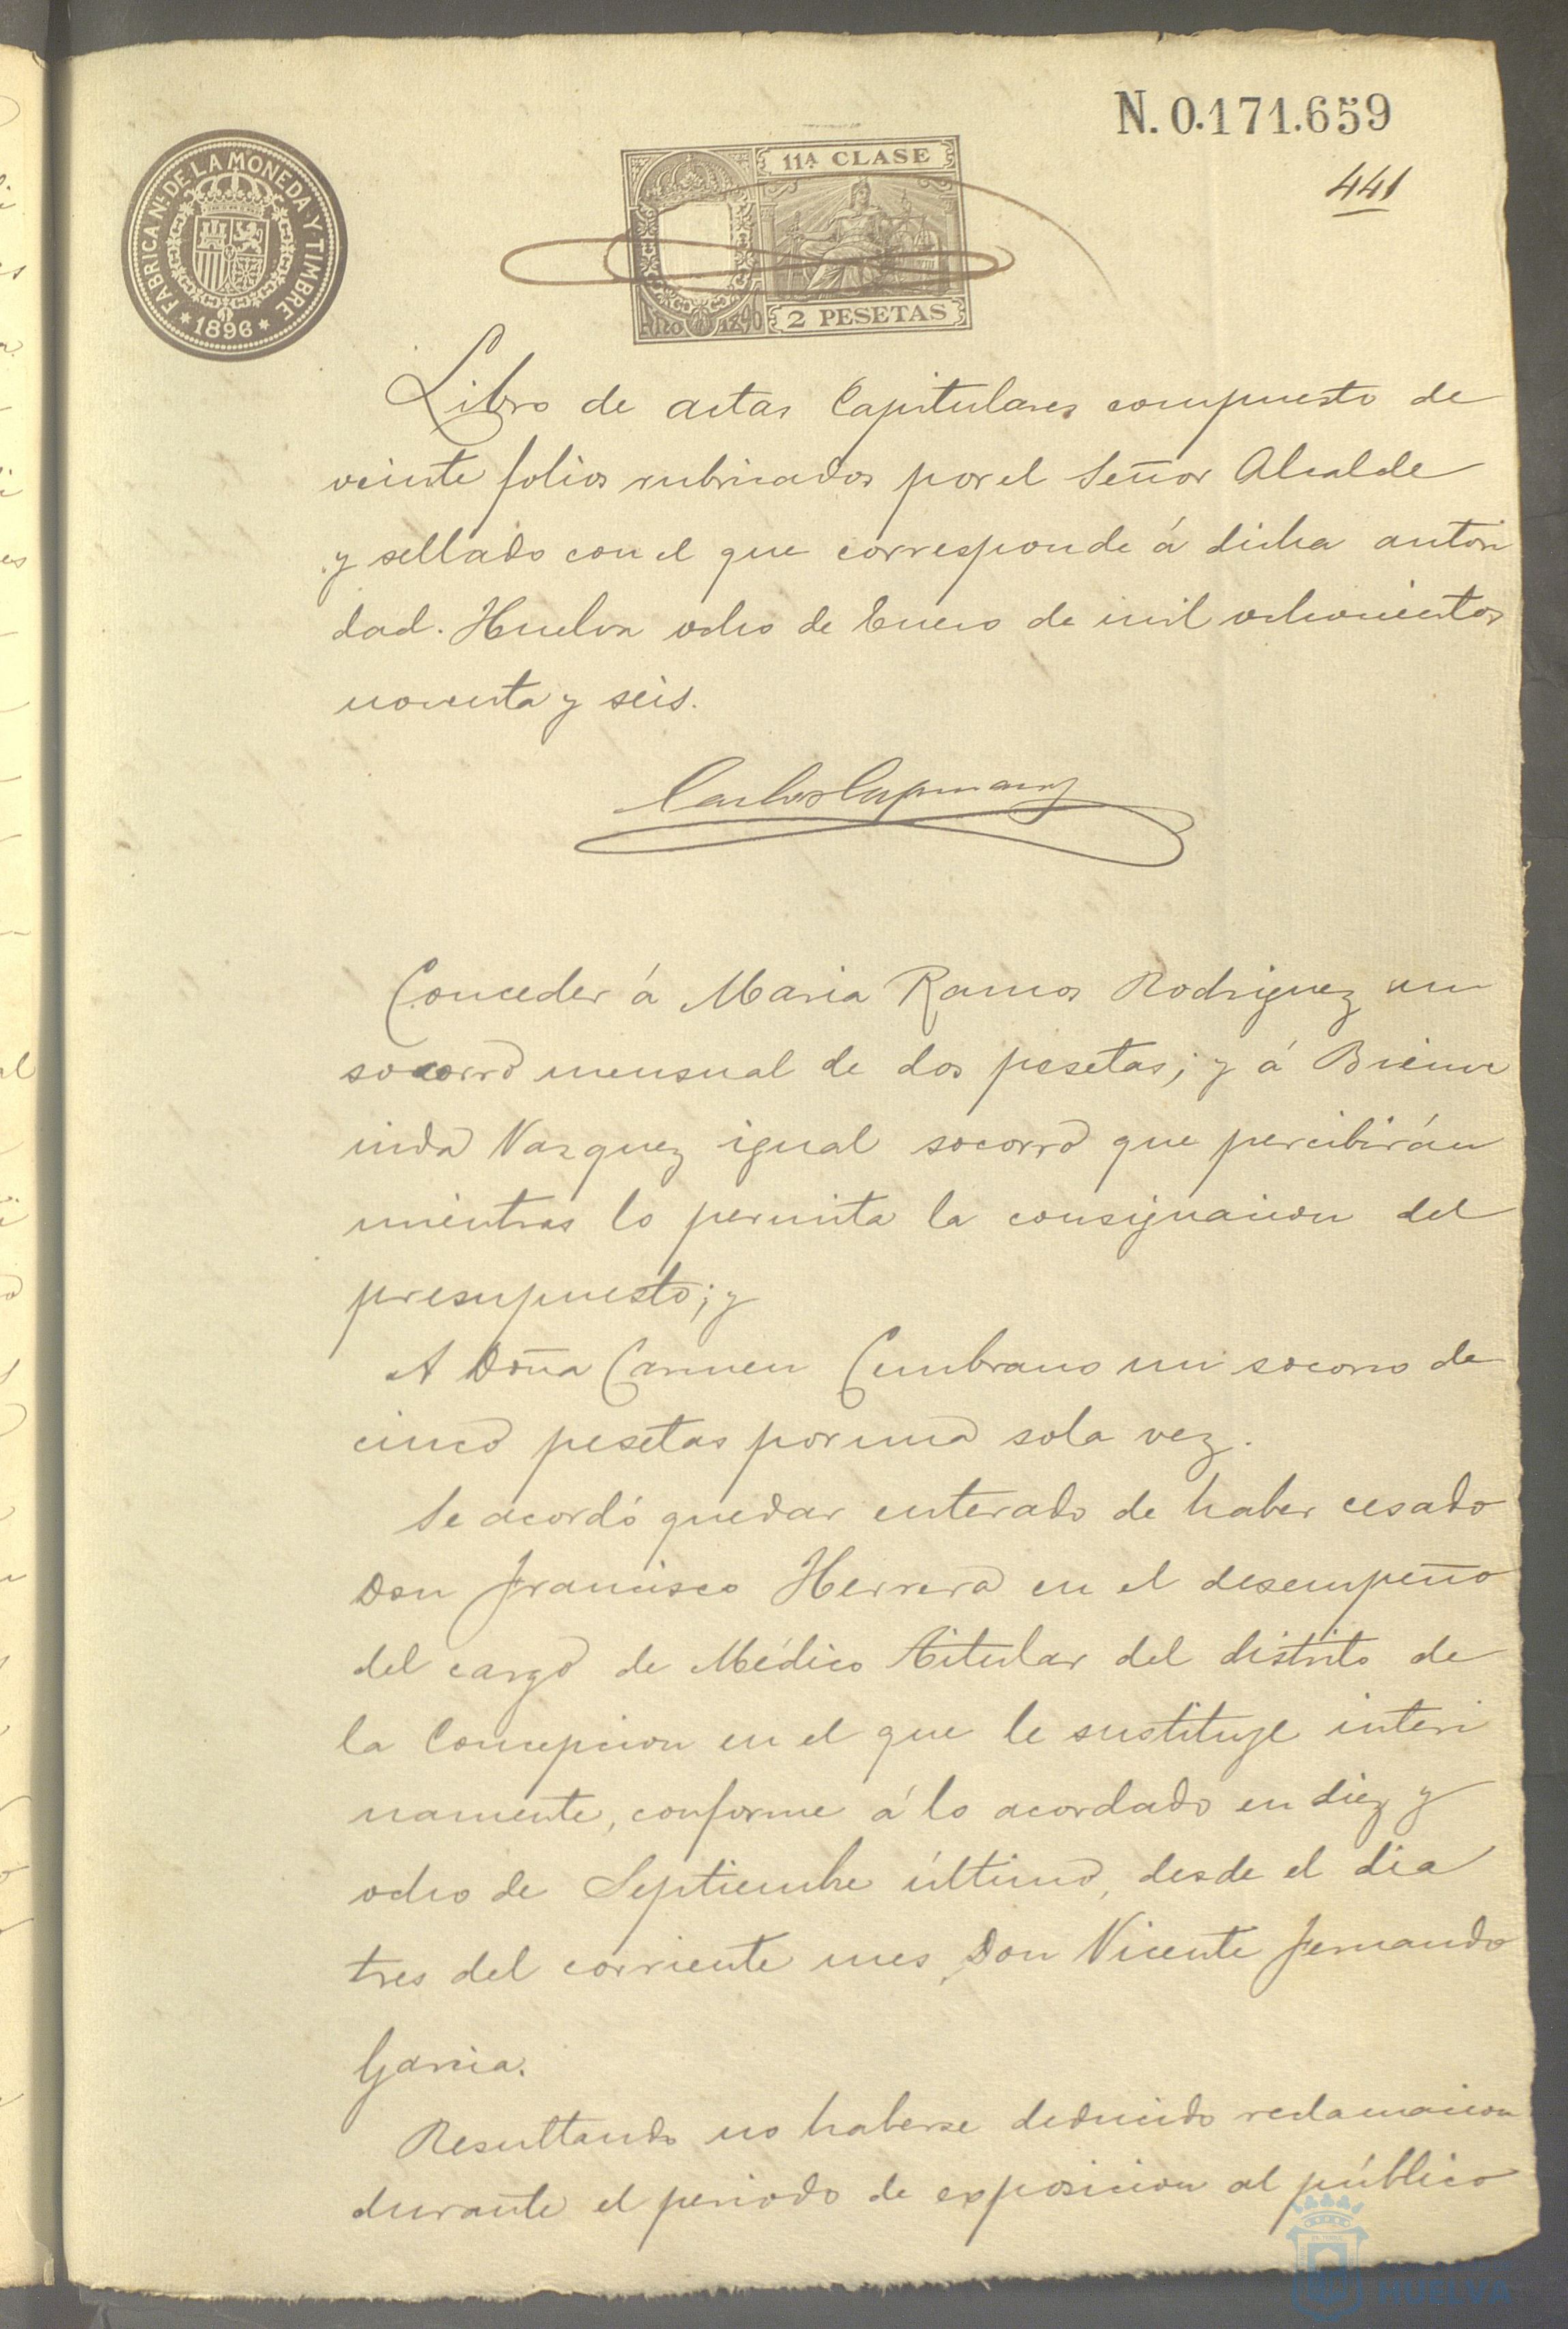 N. 0.171.659
441
FABRICA Nᴸ DE LA MONEDA Y TIMBRE
* 1896 *
11ᴬ CLASE
2 PESETAS
Libro de actas Capitulares compuesto de
veinte folios rubricados por el Señor Alcalde
y sellado con el que corresponde á dicha autori
dad. Huelva ocho de Enero de mil ochocientos
noventa y seis.
Carlos Capmany
Conceder á Maria Ramos Rodriguez un
socorro mensual de dos pesetas; y á Bienve
nida Vazquez igual socorro que percibirán
mientras lo permita la consignacion del
presupuesto; y
A Doña Carmen Cumbrano un socorro de
cinco pesetas por una sola vez.
Se acordó quedar enterado de haber cesado
Don Francisco Herrera en el desempeño
del cargo de Médico titular del distrito de
la Concepcion en el que le sustituye interi
namente, conforme á lo acordado en diez y
ocho de Septiembre último, desde el dia
tres del corriente mes, Don Vicente Fernando
Garcia.
Resultando no haberse deducido reclamacion
durante el periodo de exposicion al público
HUELVA